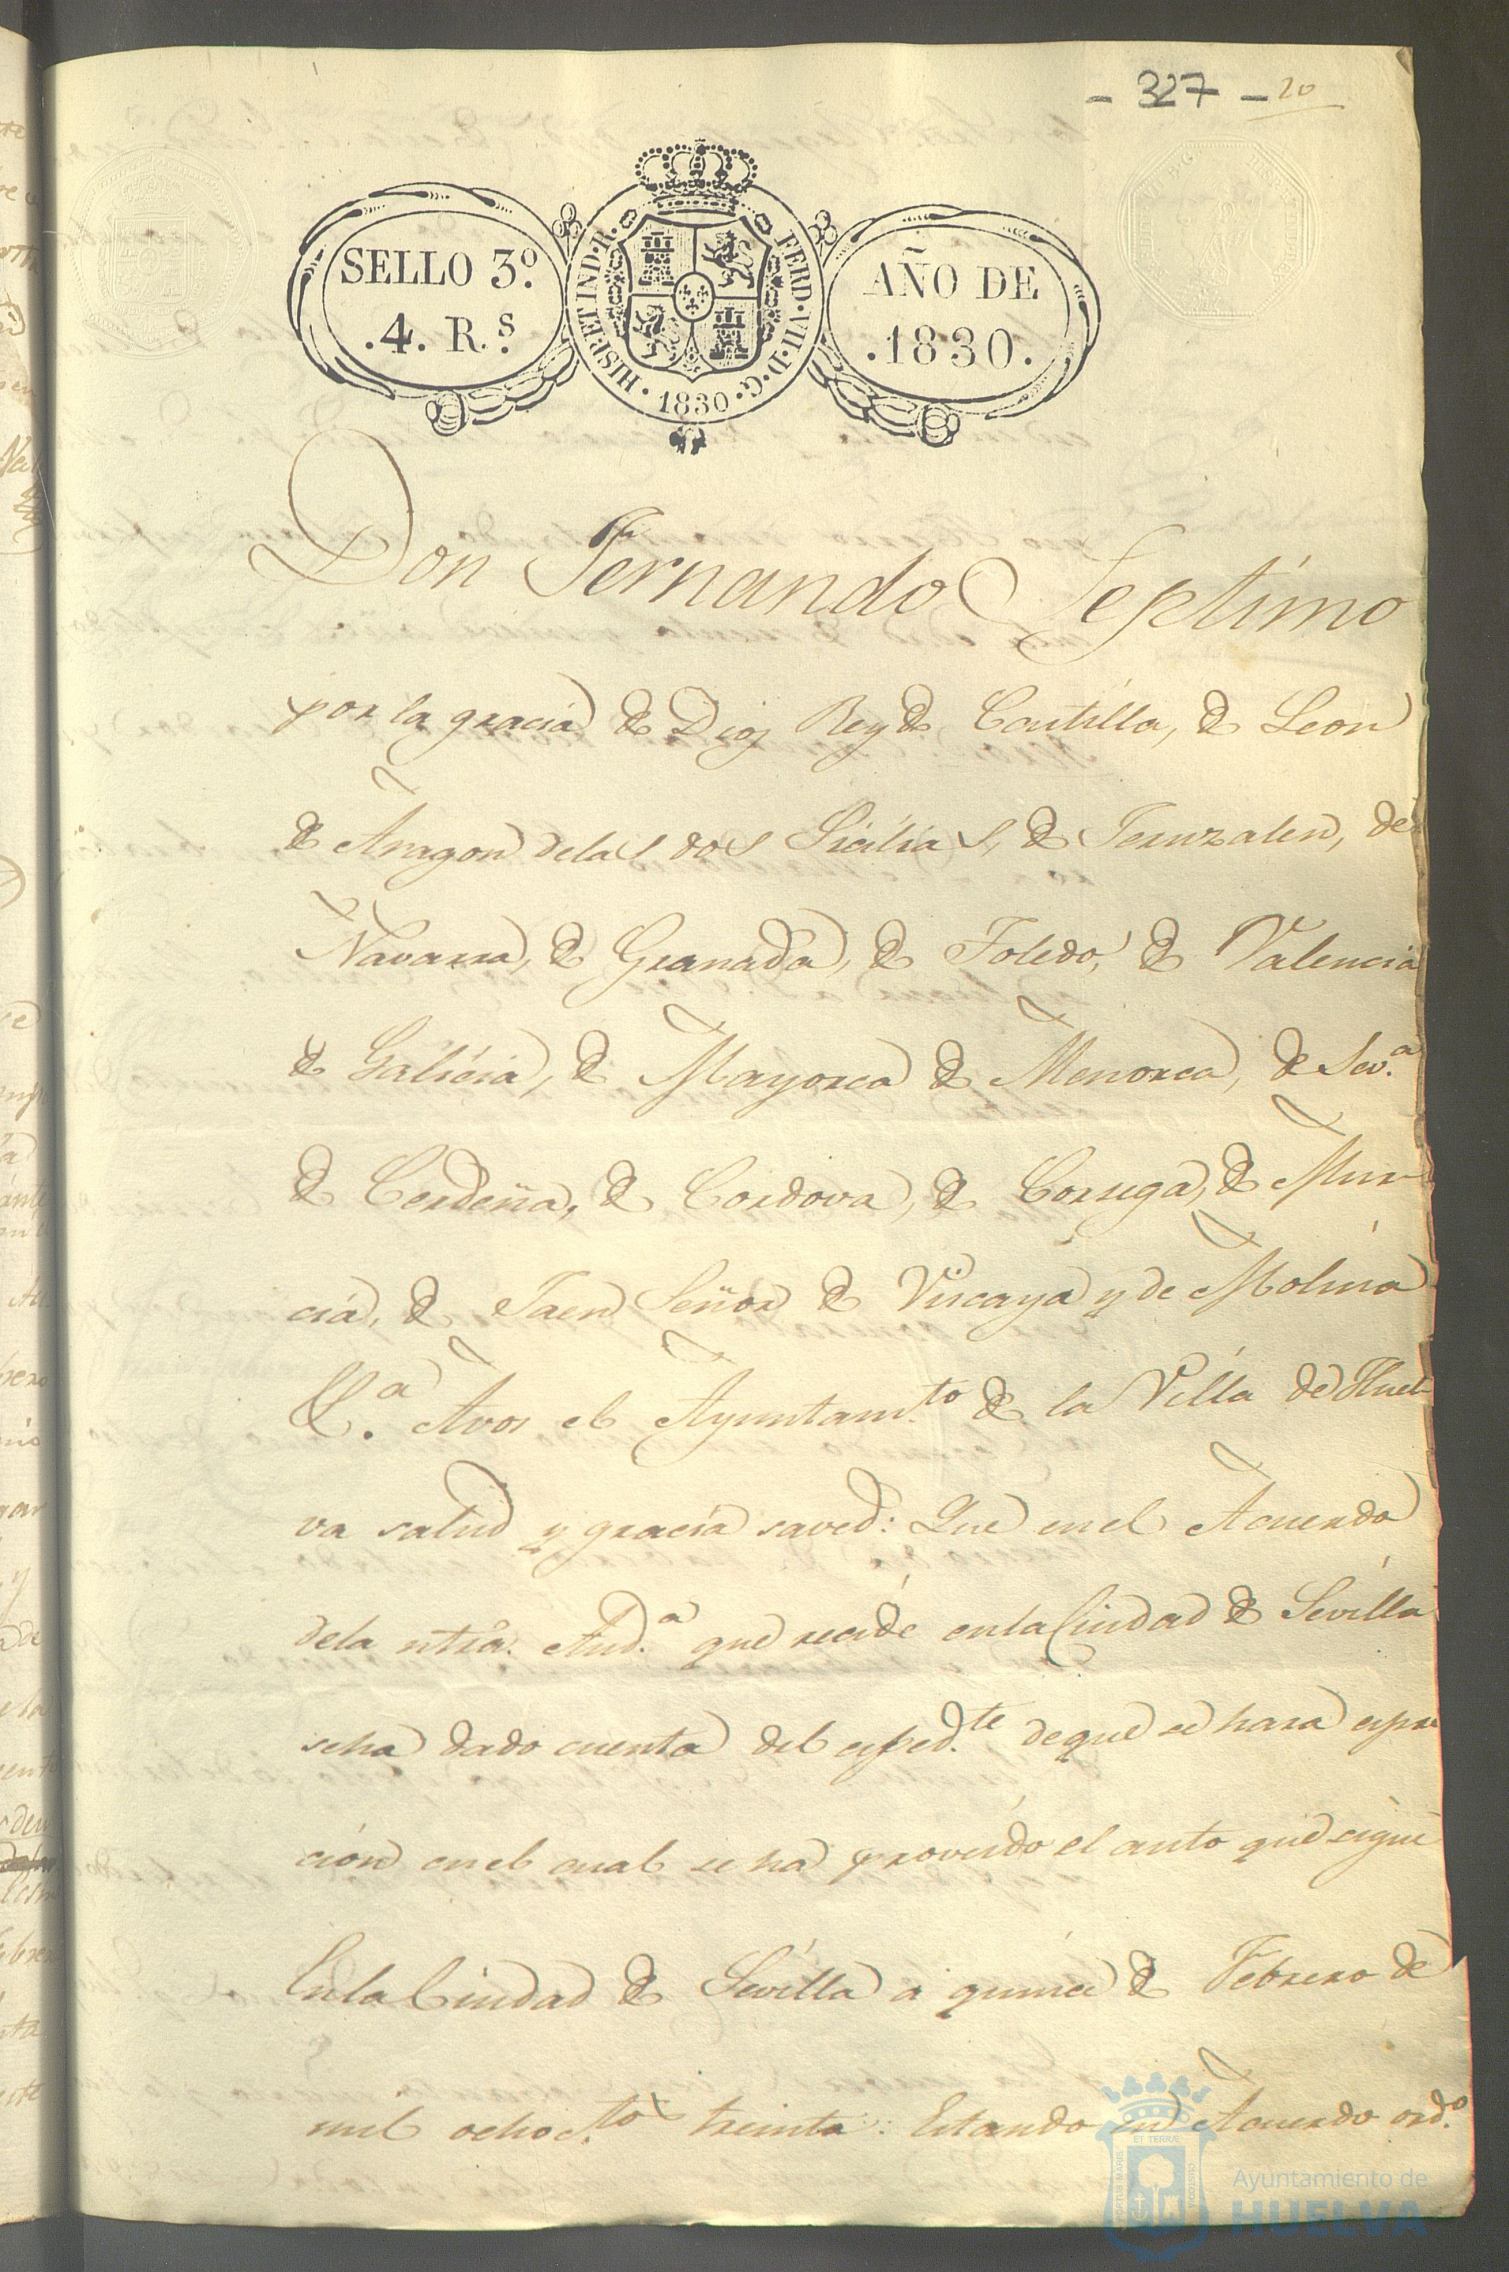 - 327 - 20
SELLO 3º.
.4. R.s
HISP·ET IND·R. FERD·VII·D·G· 1830
AÑO DE
.1830.
Don Fernando Septimo
por la gracia de Dios Rey de Castilla, de Leon
de Aragon delas dos Sicilias, de Jeruzalen, de
Navarra, de Granada, de Toledo, de Valencia
de Galicia, de Mayorca de Menorca, de Sev.a
de Cerdeña, de Cordova, de Corsega, de Mur
cia, de Jaen Señor de Viscaya y de Molina
&.a Avos el Ayuntam.to de la Villa de Huel
va salud y gracia saved: Que en el Acuerdo
dela ntra. Aud.a que recide enla Ciudad de Sevilla
seha dado cuenta del exped.te deque se hara expre
cion en el cual se ha proveido el auto que sigue
Enla Ciudad de Sevilla a quince de Febrero de
mil ochoc.tos treinta: Estando en Acuerdo ord.o
Ayuntamiento de
HUELVA